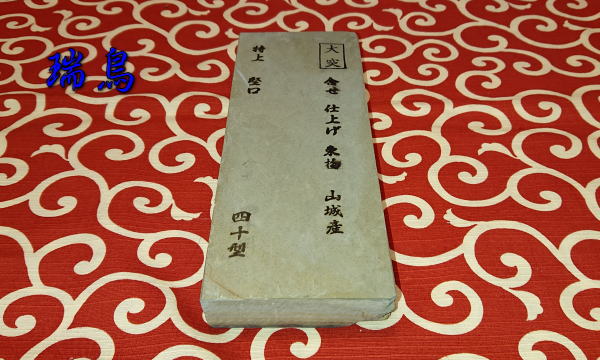 瑞鳥
大突 合せ 仕上げ 東梅 山城産
特上 堅口
四十型